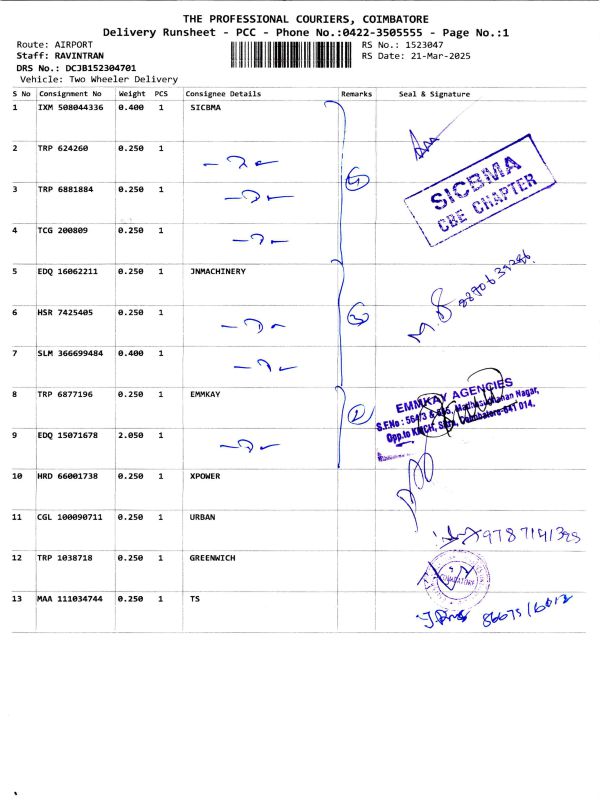 THE PROFESSIONAL COURIERS, COIMBATORE
Delivery Runsheet - PCC - Phone No.:0422-3505555 - Page No.:1
Route: AIRPORT RS No.: 1523047
Staff: RAVINTRAN RS Date: 21-Mar-2025
DRS No.: DCJB152304701
Vehicle: Two Wheeler Delivery
S No Consignment No Weight PCS Consignee Details Remarks Seal & Signature
1 IXM 508044336 0.400 1 SICBMA
2 TRP 624260 0.250 1
3 TRP 6881884 0.250 1 4
SICBMA
CBE CHAPTER
4 TCG 200809 0.250 1
5 EDQ 16062211 0.250 1 JNMACHINERY
6 HSR 7425405 0.250 1 3
7 SLM 366699484 0.400 1
8 TRP 6877196 0.250 1 EMMKAY 2
EMMKAY AGENCIES
9 EDQ 15071678 2.050 1
10 HRD 66001738 0.250 1 XPOWER
11 CGL 100090711 0.250 1 URBAN 9787141395
12 TRP 1038718 0.250 1 GREENWICH
13 MAA 111034744 0.250 1 TS